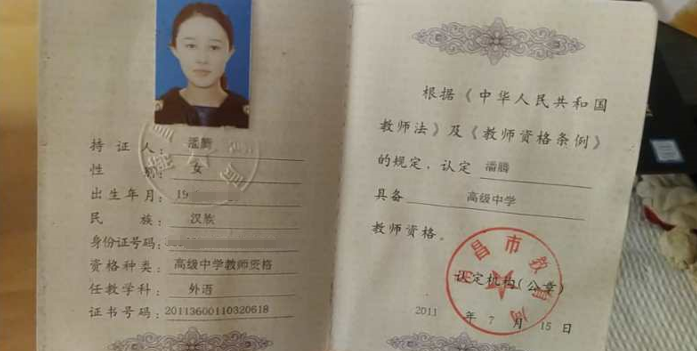 持证人：潘腾
性别：女
出生年月：19
民族：汉族
身份证号码：
资格种类：高级中学教师资格
任教学科：外语
证书号码：20113600110320618
根据《中华人民共和国
教师法》及《教师资格条例》
的规定，认定 潘腾
具备 高级中学
教师资格。
认定机构（公章）
昌市教育局
2011 年 7 月 15 日